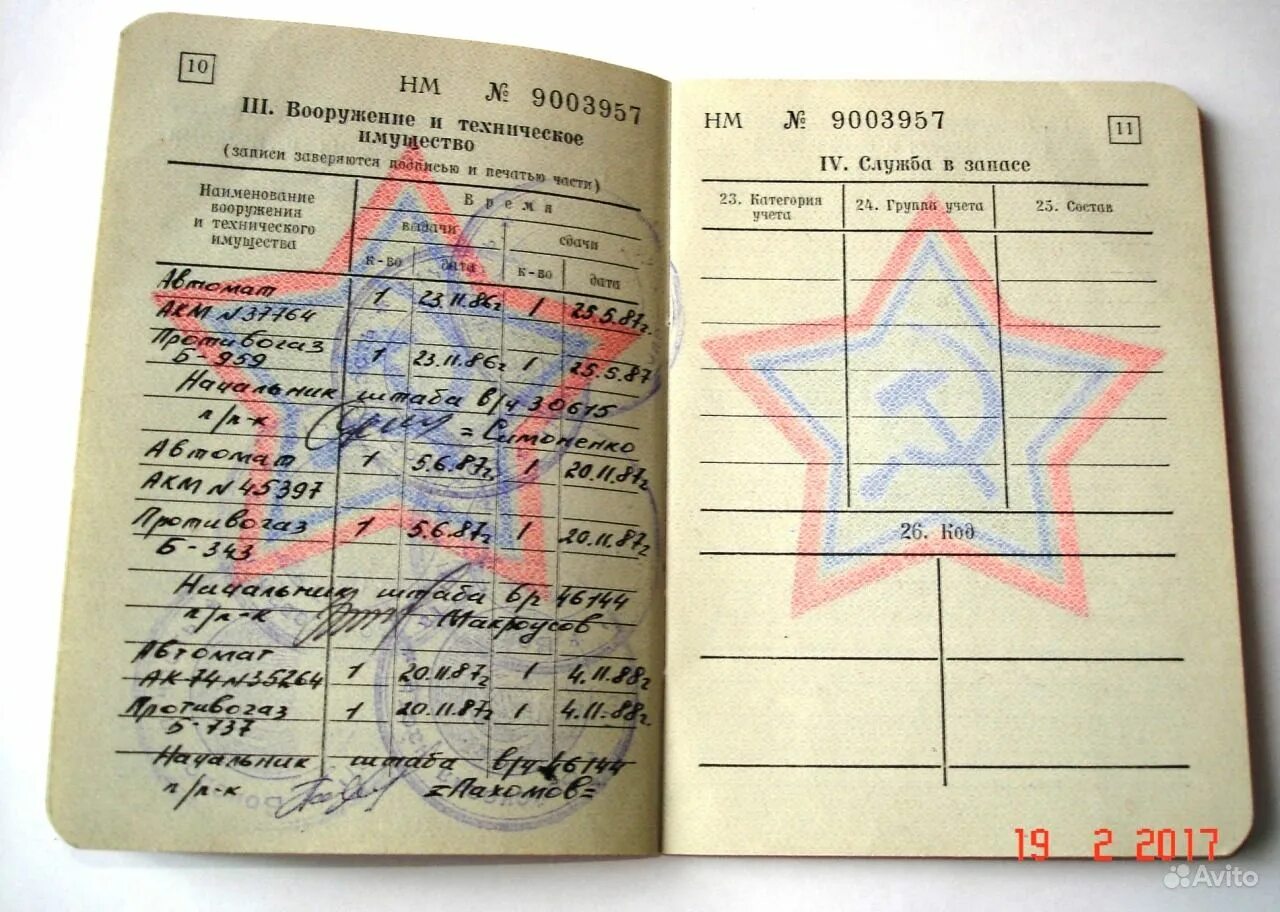 10
НМ № 9003957
III. Вооружение и техническое
имущество
(записи заверяются подписью и печатью части)
Наименование
вооружения
и технического
имущества
Время
выдачи
сдачи
к-во
дата
к-во
дата
Автомат
АКМ N 37764
1 23.11.86г 1 25.5.87г.
Противогаз
Б-959
1 23.11.86г 1 25.5.87
Начальник штаба в/ч 30615
п/п-к = Симоненко
Автомат 1 5.6.87г. 1 20.11.87г
АКМ N 45397
Противогаз 1 5.6.87г 1 20.11.87г
Б-343
Начальник штаба в/ч 46144
п/п-к Макроусов
Автомат
АК-74 N 35264 1 20.11.87г 1 4.11.88г
Противогаз 1 20.11.87г 1 4.11.88г
Б-737
Начальник штаба в/ч 46144
п/п-к =Пахомов=
НМ № 9003957
11
IV. Служба в запасе
23. Категория
учета
24. Группа учета
25. Состав
26. Код
19 2 2017
Avito